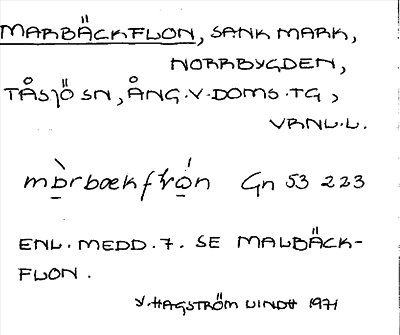 MARBÄCKFLON, SANK MARK,
NORRBYGDEN,
TÅSJÖ SN, ÅNG.V.DOMS.TG,
VRNL.L.
mɒ̀rbækfrón Gn 53 223
ENL. MEDD. 7. SE MALBÄCK-
FLON.
V. HAGSTRÖM LINDH 1971